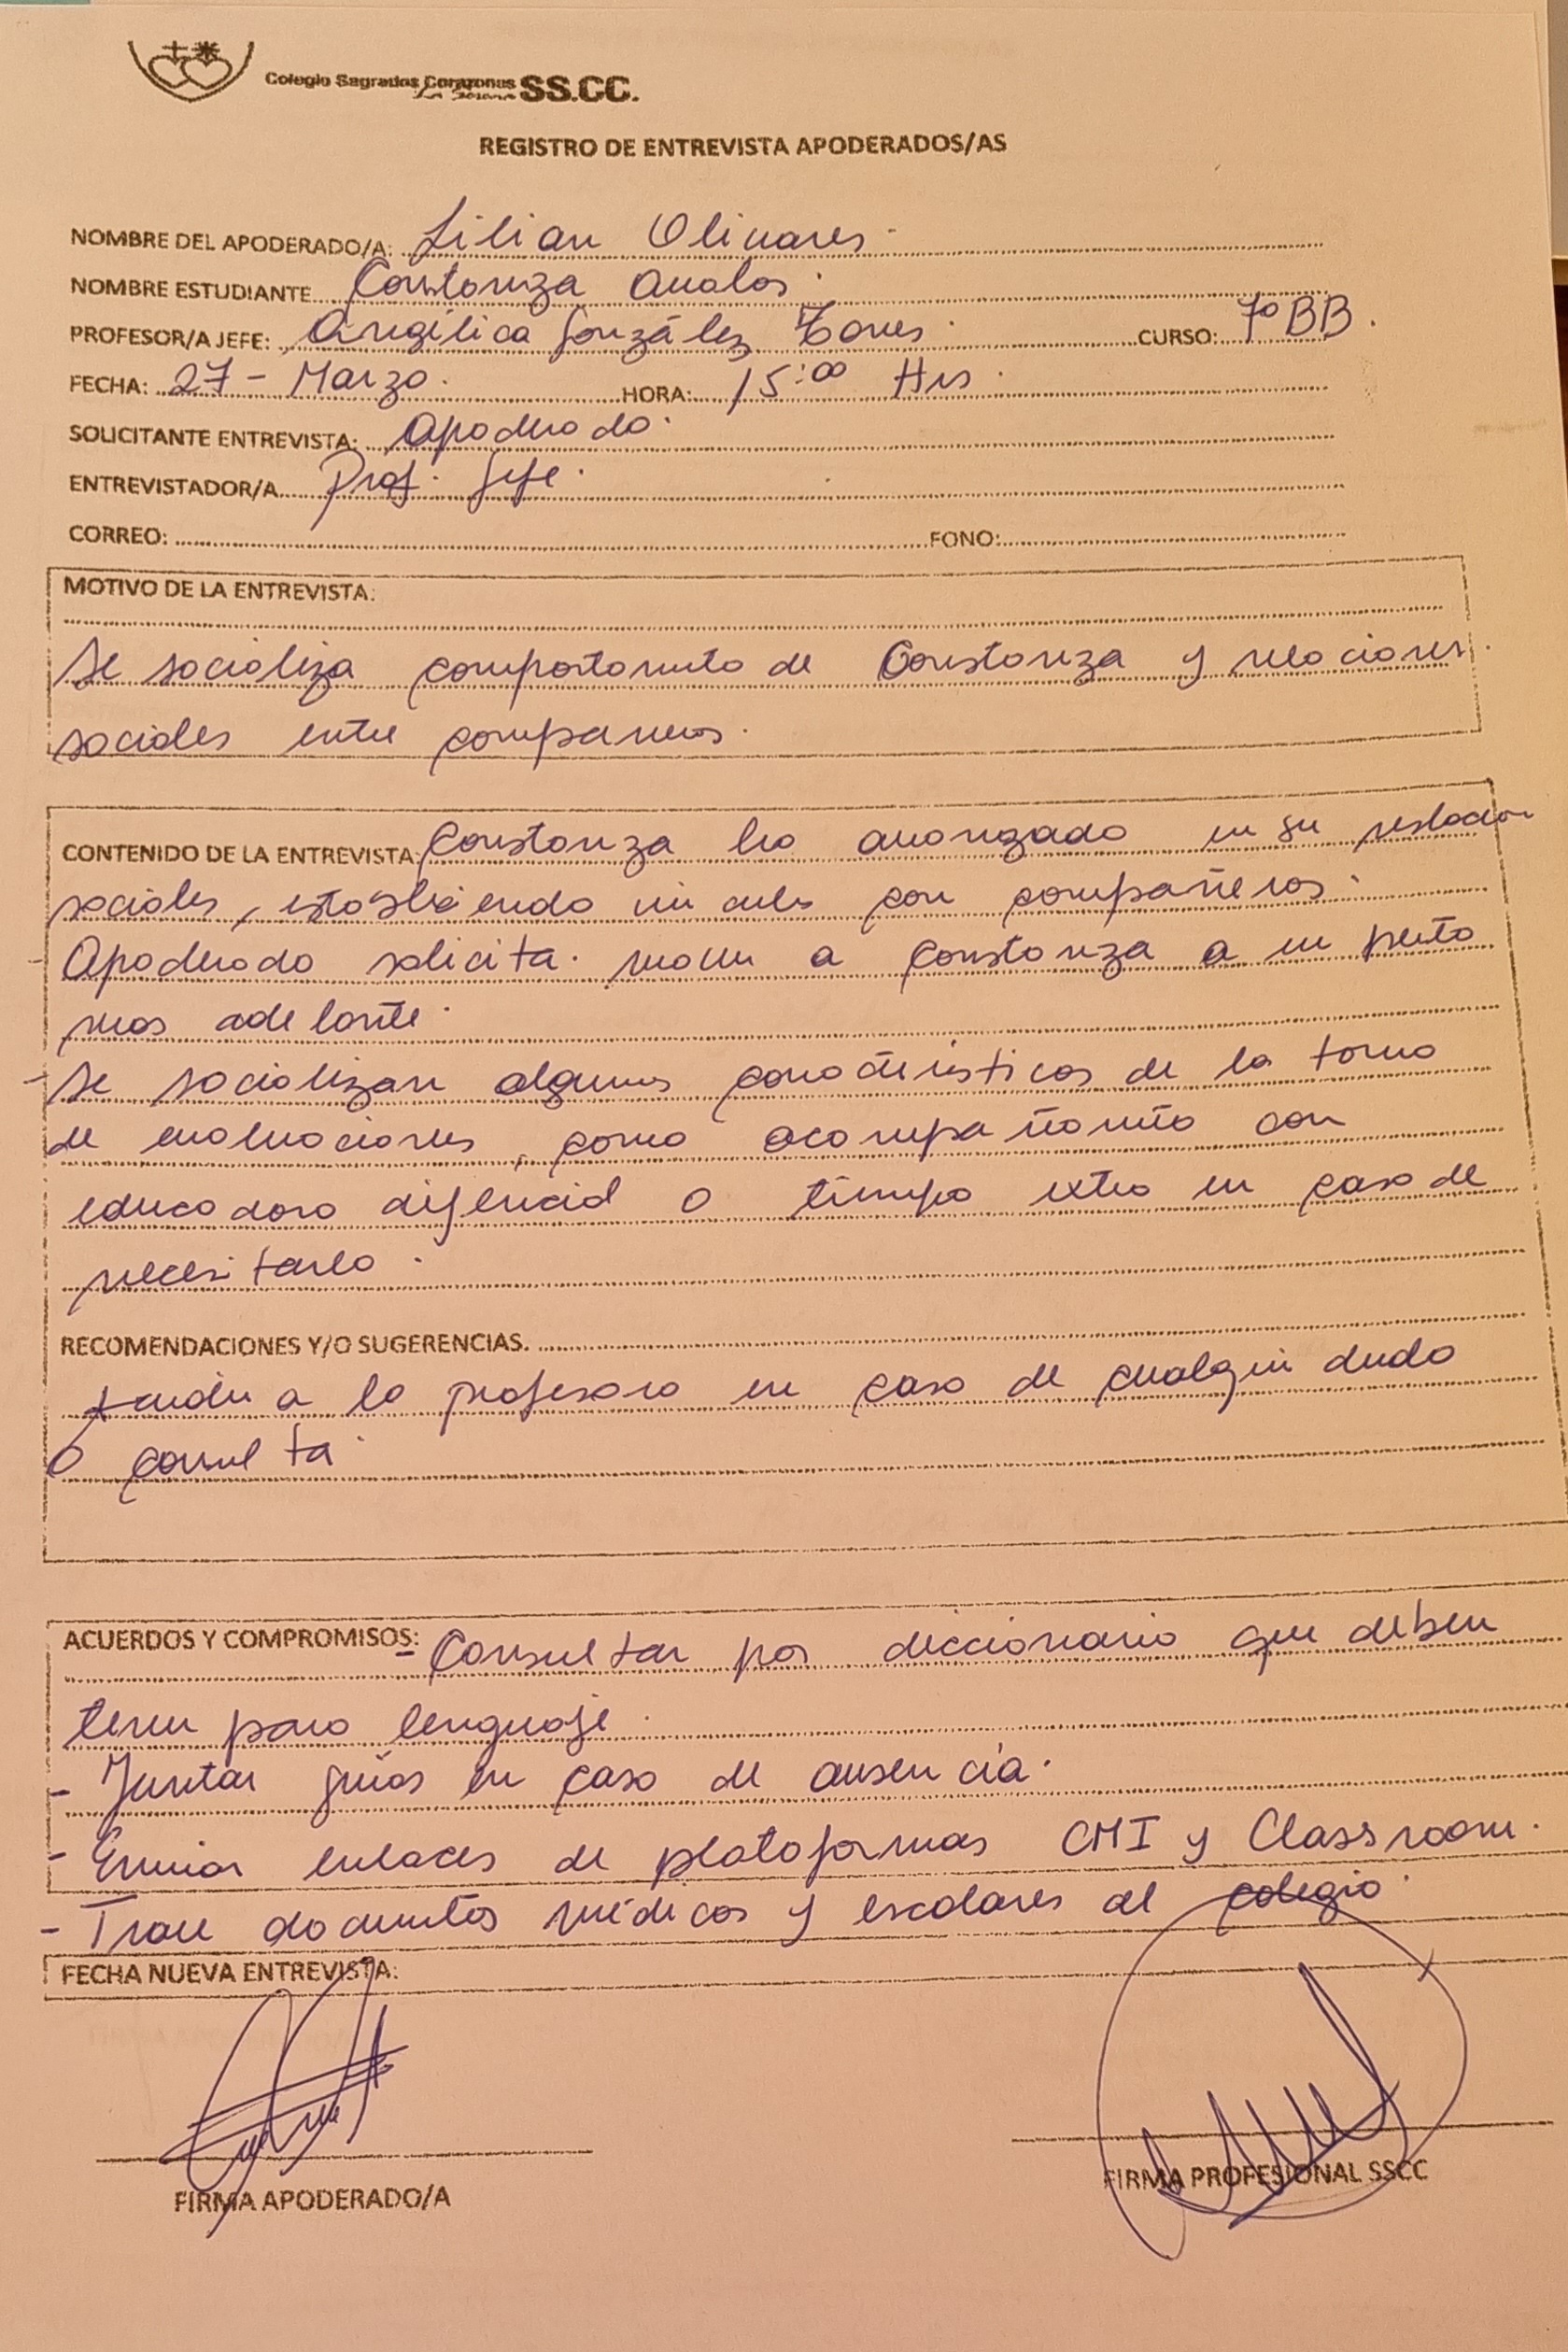 Colegio Sagrados Corazones SS.CC.
REGISTRO DE ENTREVISTA APODERADOS/AS
NOMBRE DEL APODERADO/A: Lilian Olivares.
NOMBRE ESTUDIANTE Constanza Avalos.
PROFESOR/A JEFE: Angélica González Torres. CURSO: 7º BB.
FECHA: 27 - Marzo. HORA: 15:00 Hrs.
SOLICITANTE ENTREVISTA: Apoderado.
ENTREVISTADOR/A Prof. Jefe.
CORREO: FONO:
MOTIVO DE LA ENTREVISTA:
Se socializa comportamiento de Constanza y relaciones
sociales entre compañeros.
CONTENIDO DE LA ENTREVISTA: Constanza ha avanzado en su relación
sociales, estableciendo vinculo con compañeros.
Apoderado solicita mover a Constanza a un puesto
mas adelante.
- Se socializan algunas características de la toma
de evaluaciones, como acompañamiento con
educadora diferencial o tiempo extra en caso de
necesitarlo.
RECOMENDACIONES Y/O SUGERENCIAS.
a la profesora en caso de cualquier duda
o consulta.
ACUERDOS Y COMPROMISOS: - Consultar por diccionario que deben
tener para lenguaje.
- Juntar guías en caso de ausencia.
- Enviar enlaces de plataformas CMI y Classroom.
- Traer documentos médicos y escolares al colegio.
FECHA NUEVA ENTREVISTA:
FIRMA APODERADO/A
FIRMA PROFESIONAL SSCC